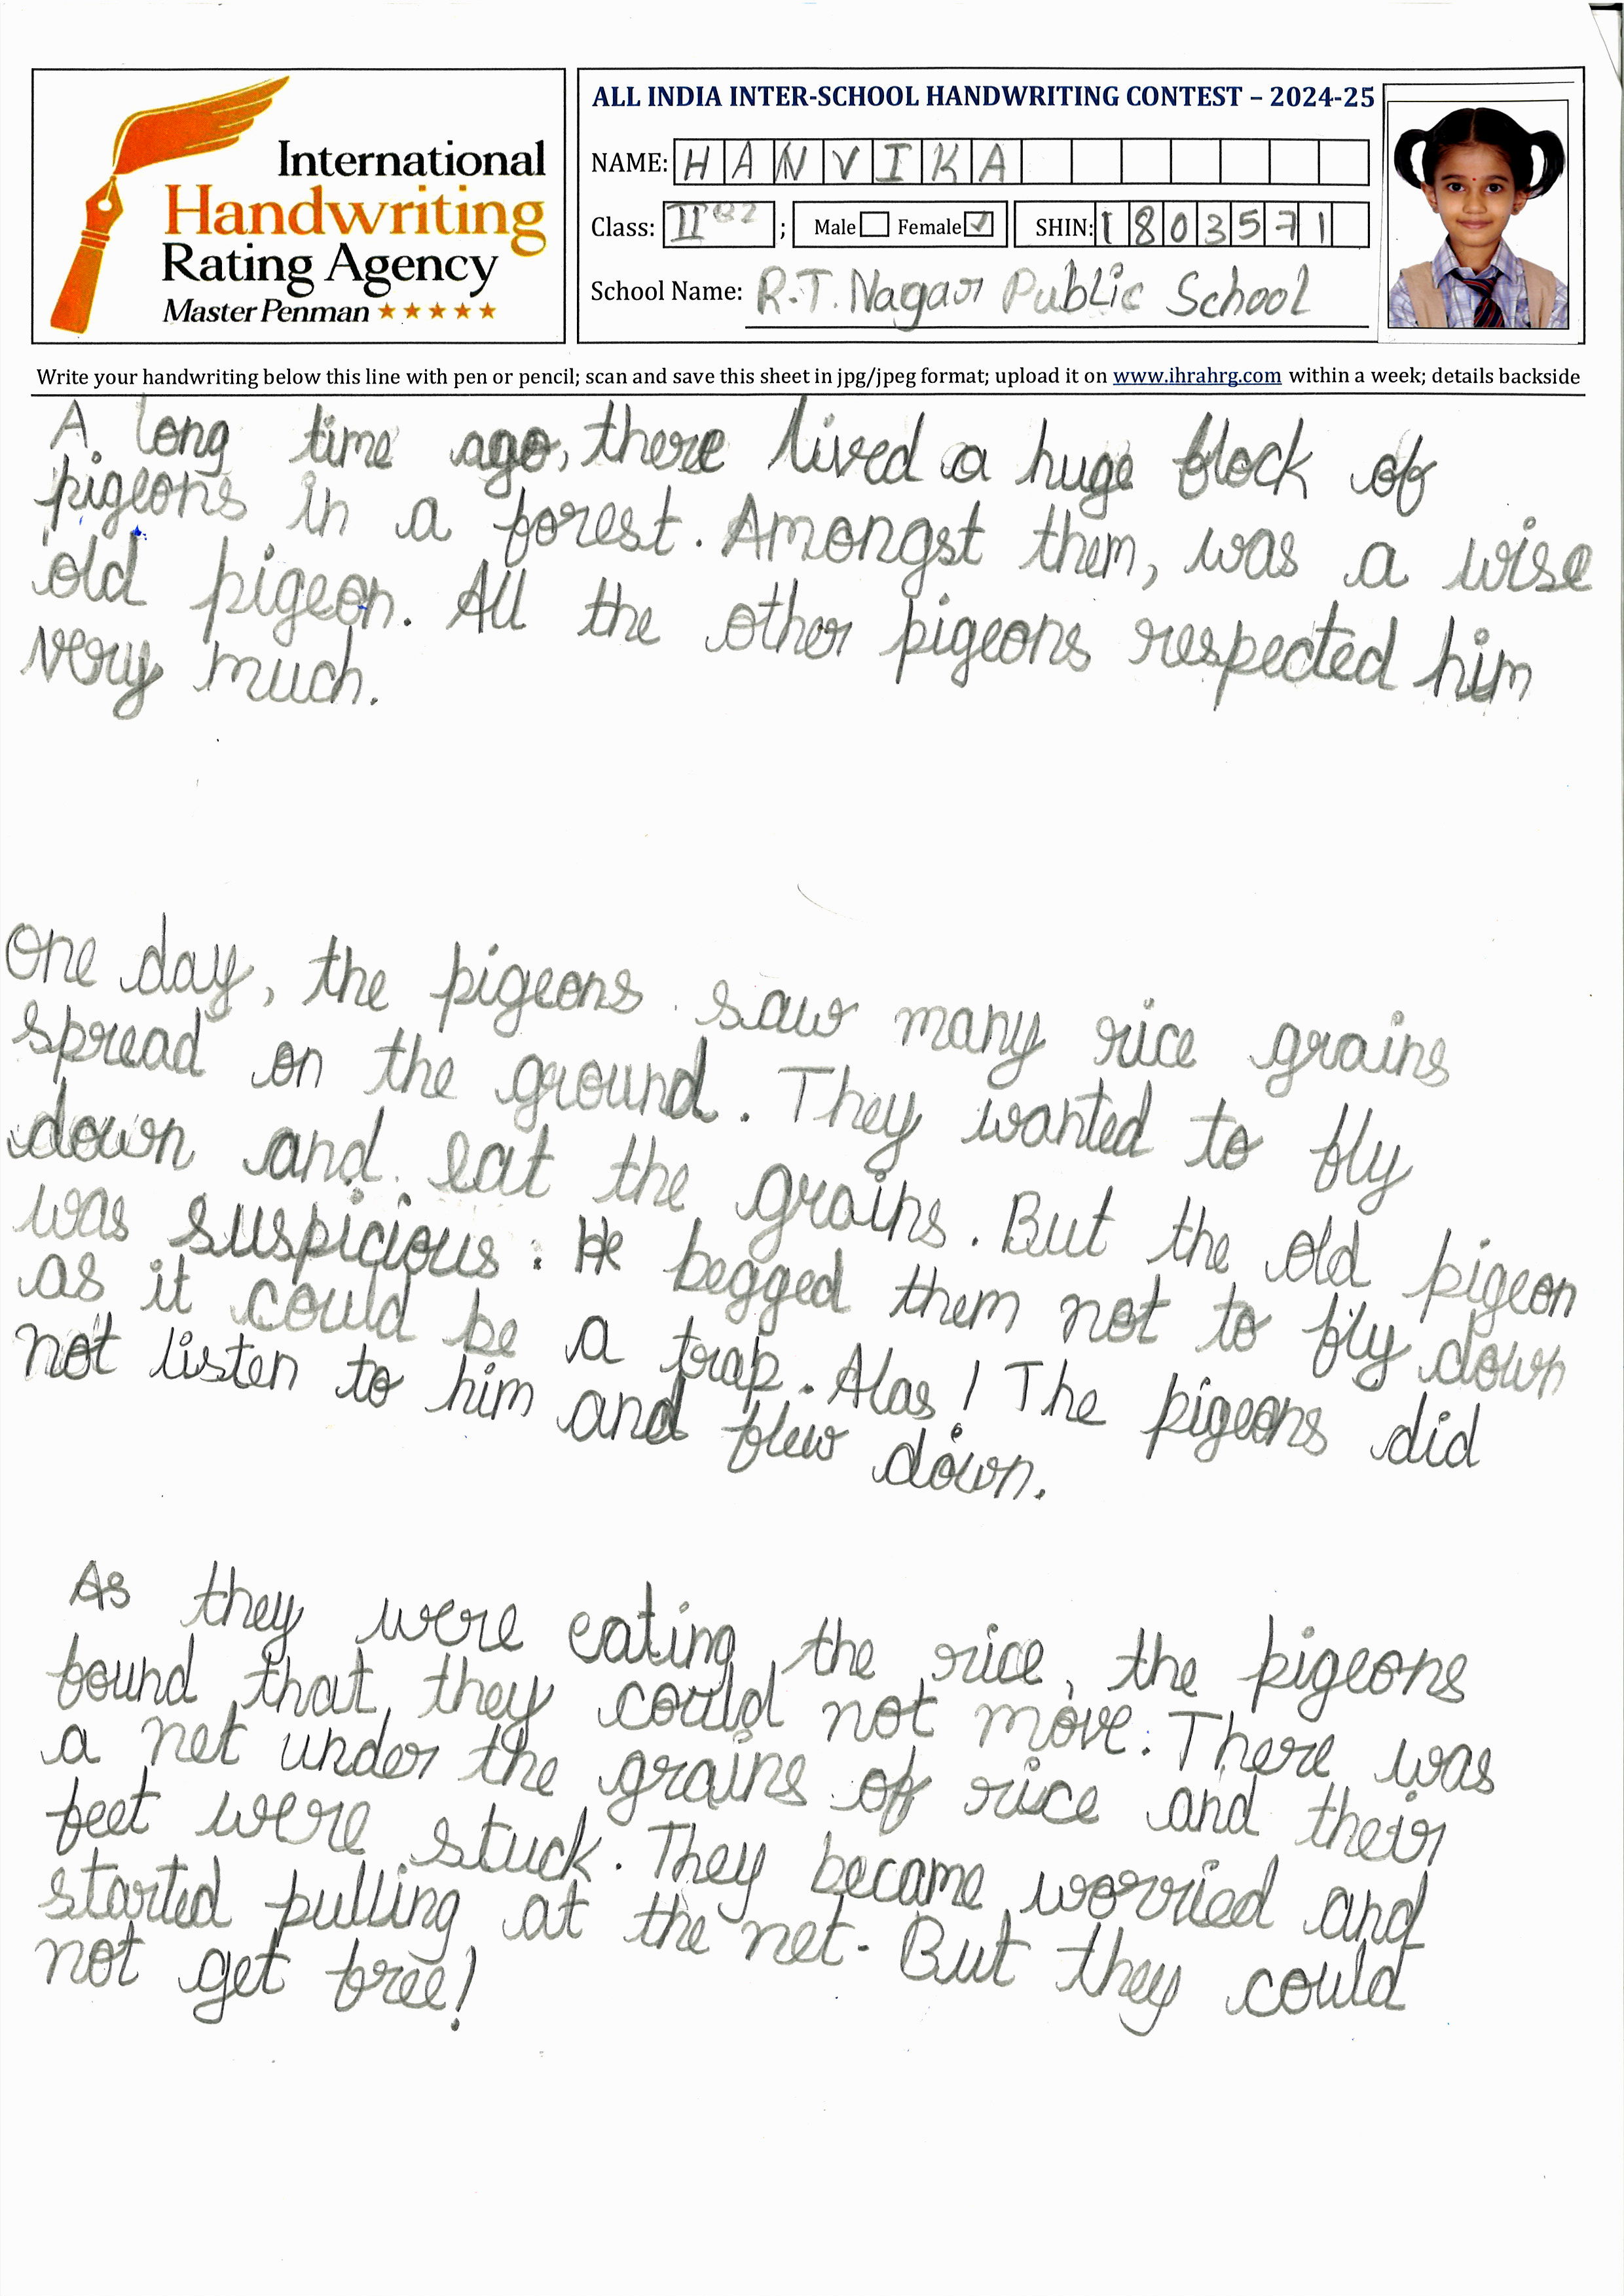 International
Handwriting
Rating Agency
Master Penman
ALL INDIA INTER-SCHOOL HANDWRITING CONTEST – 2024-25
NAME: HANVIKA
Class: II ; Male Female ✓ SHIN: 1803571
School Name: R.T. Nagar Public School
Write your handwriting below this line with pen or pencil; scan and save this sheet in jpg/jpeg format; upload it on www.ihrahrg.com within a week; details backside
A long time ago, there lived a huge flock of
pigeons in a forest. Amongst them, was a wise
old pigeon. All the other pigeons respected him
very much.
One day, the pigeons saw many rice grains
spread on the ground. They wanted to fly
down and eat the grains. But the old pigeon
was suspicious. He begged them not to fly down
as it could be a trap. Alas! The pigeons did
not listen to him and flew down.
As they were eating the rice, the pigeons
found that they could not move. There was
a net under the grains of rice and their
feet were stuck. They became worried and
started pulling at the net. But they could
not get free!